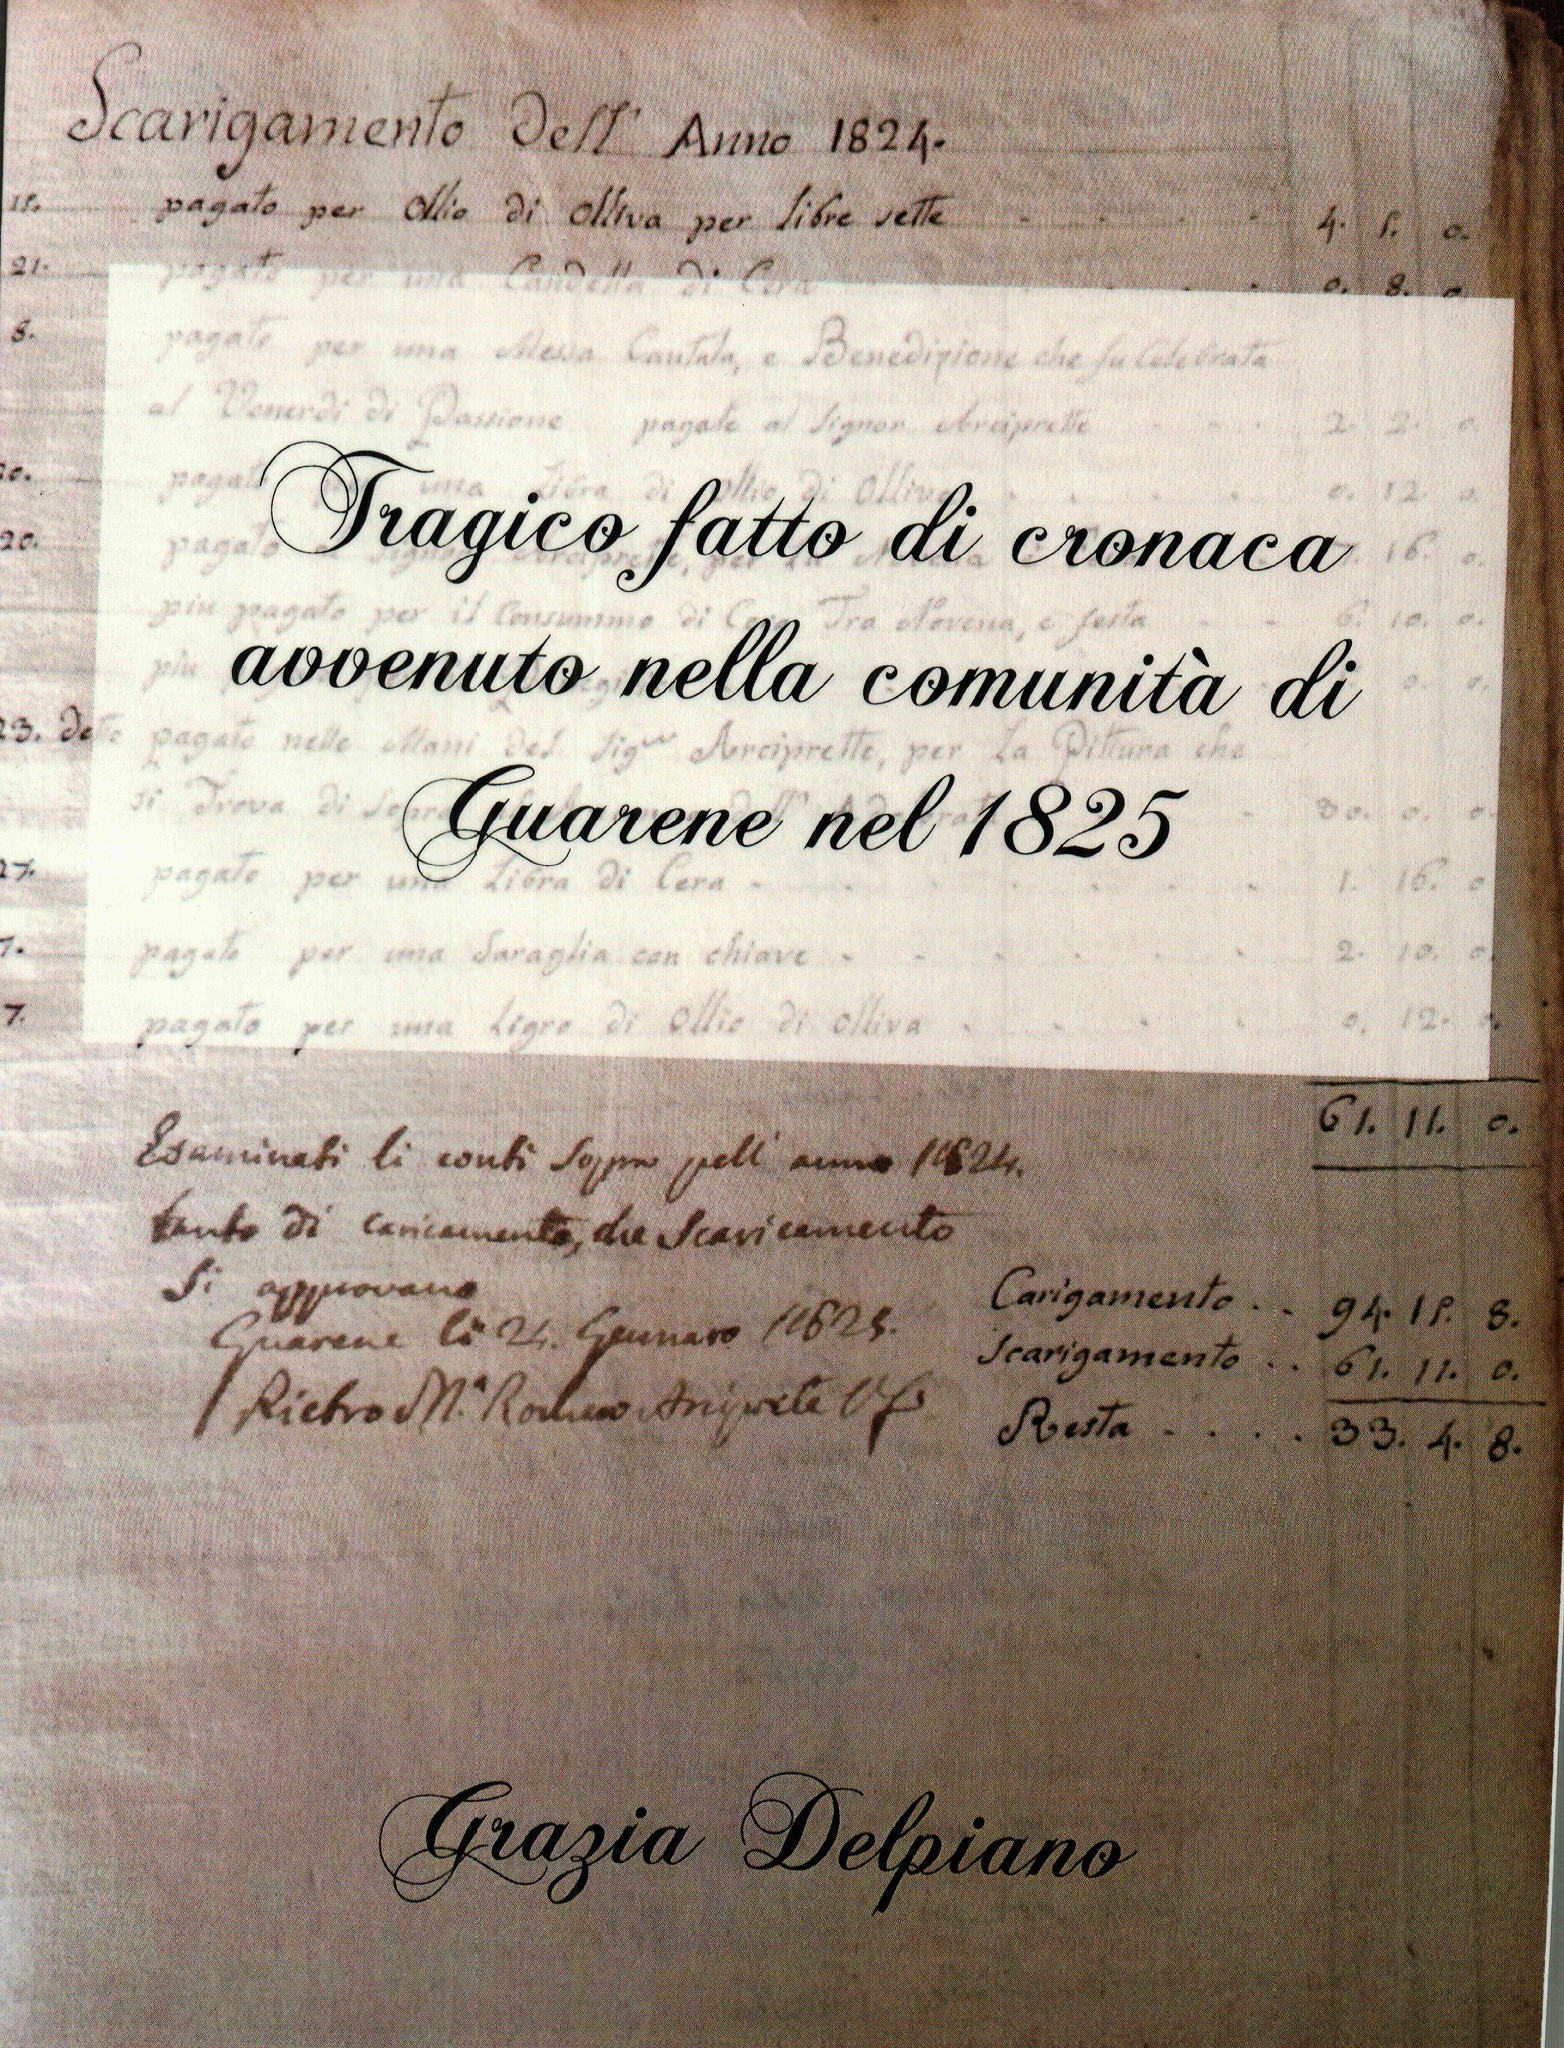 Scarigamento dell' Anno 1824.
15. pagato per Ollio di Olliva per libre sette 4. 5. 0.
21. pagato per una Candella di Cera 0. 8. 0.
5. pagato per una Messa Cantata, e Benedizione che fu Celebrata
al Venerdi di Passione pagato al Signor Arciprette 2. 2. 0.
pagato una Libra di Ollio di Olliva 0. 12. 0.
Tragico fatto di cronaca
20. pagato 16. 0.
piu pagato per il Consummo di Tra Novena, e festa 6. 10. 0.
avvenuto nella comunità di
piu 0. 0.
23. detto pagato nelle Mani del Sig.r Arciprette, per La Pittura che
si Trova di 30. 0. 0.
Guarene nel 1825
27. pagato per una Libra di Cera 1. 16. 0
7. pagato per una Saraglia con chiave 2. 10. 0.
7. pagato per una Ligra di Ollio di Olliva 0. 12. 0.
61. 11. 0.
Esaminati li conti sopra pell' anno 1824.
tanto di caricamento, che Scaricamento
Si approvano
Guarene li 24. Gennaro 1825.
Pietro M.a Romano Arciprete
Carigamento .. 94. 15. 8.
Scarigamento .. 61. 11. 0.
Resta .... 33. 4. 8.
Grazia Delpiano